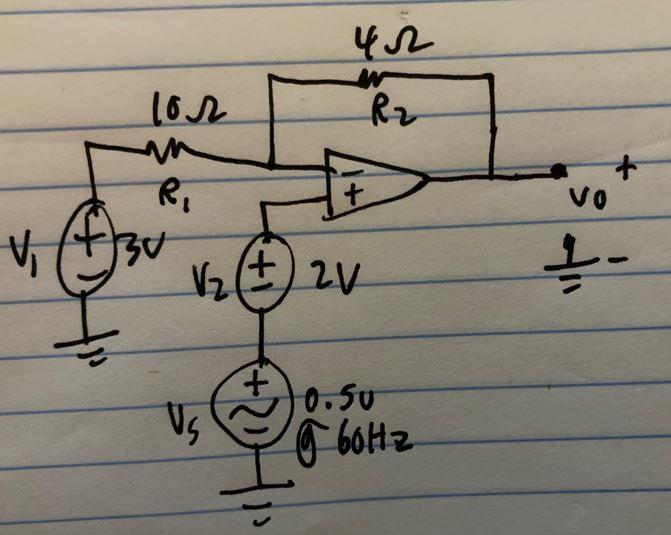 4Ω
R2
10Ω
R1
V1
+
3V
-
+
v0
+
-
V2
+
-
2V
Vs
+
0.5v
@ 60Hz